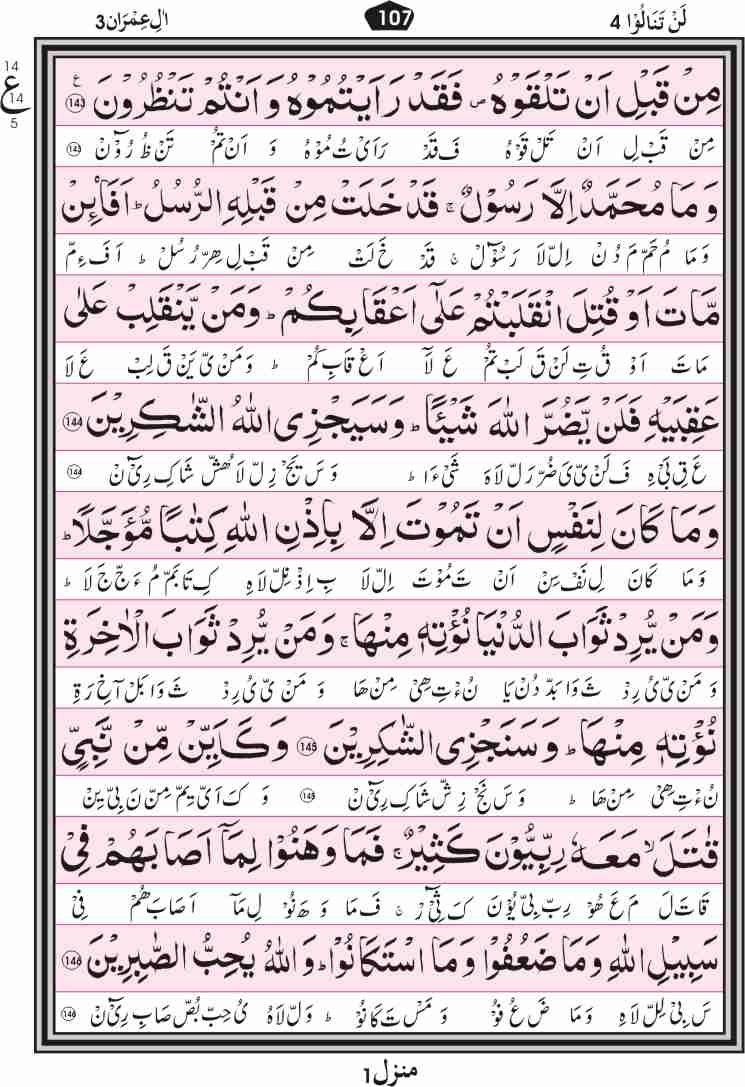 لَنْ تَنَالُوْا 4
107
اٰلِ عِمْرَان 3
14
ع
14
5
مِنْ قَبْلِ اَنْ تَلْقَوْهُ ۪ فَقَدْ رَاَيْتُمُوْهُ وَ اَنْتُمْ تَنْظُرُوْنَ ۧ 143
مِنْ قَبْ لِ اَنْ تَلْ قَوْهُ فَ قَدْ رَاَىْ تُ مُوْهُ وَ اَنْ تُمْ تَنْ ظُ رُوْٓنْ 143
وَ مَا مُحَمَّدٌ اِلَّا رَسُوْلٌ ۚ قَدْ خَلَتْ مِنْ قَبْلِهِ الرُّسُلُ ؕ اَفَا۠ئِنْ
وَ مَا مُ حَمْ مَ دُنْ اِلْ لَا رَسُوْٓلْ ۚ قَدْ خَ لَتْ مِنْ قَبْ لِ هِرْ رُسُلْ ؕ اَ فَ ءِمّْ
مَّاتَ اَوْ قُتِلَ انْقَلَبْتُمْ عَلٰٓى اَعْقَابِكُمْ ؕ وَمَنْ يَّنْقَلِبْ عَلٰى
مَاتَ اَوْ قُ تِ لَنْ قَ لَبْ تُمْ عَ لَآ اَعْ قَابِ كُمْ ؕ وَ مَنْ ىّ يَنْ قَ لِبْ عَ لَا
عَقِبَيْهِ فَلَنْ يَّضُرَّ اللّٰهَ شَيْـًٔا ؕ وَ سَيَجْزِى اللّٰهُ الشّٰكِرِيْنَ 144
عَ قِ بَىْ هِ فَ لَنْ ىّ يَ ضُرْ رَلْ لَاهَ شَىْ ءَا ؕ وَ سَ يَجْ زِلْ لَا هُشّ شَاكِ رِىْٓنْ 144
وَ مَا كَانَ لِنَفْسٍ اَنْ تَمُوْتَ اِلَّا بِاِذْنِ اللّٰهِ كِتٰبًا مُّؤَجَّلًا ؕ
وَ مَا كَانَ لِ نَفْ سِنْ اَنْ تَ مُوْتَ اِلْ لَا بِ اِذْ نِلْ لَاهِ كِ تَا بَمّْ مُ ءَجْ جَ لَا ؕ
وَمَنْ يُّرِدْ ثَوَابَ الدُّنْيَا نُؤْتِهٖ مِنْهَا ۚ وَمَنْ يُّرِدْ ثَوَابَ الْاٰخِرَةِ
وَ مَنْ ىّ يُ رِدْ ثَ وَا بَدّ دُنْ يَا نُ ءْ تِ هِىْ مِنْ هَا وَ مَنْ ىّ يُ رِدْ ثَ وَا بَلْ آ خِ رَةِ
نُؤْتِهٖ مِنْهَا ؕ وَ سَنَجْزِى الشّٰكِرِيْنَ 145 وَ كَاَيِّنْ مِّنْ نَّبِىٍّ
نُ ءْ تِ هِىْ مِنْ هَا ؕ وَ سَ نَجْ زِشّ شَاكِ رِىْٓنْ 145 وَ كَ اَىْ يِمّْ مِنّ نَ بِىْ يِنْ
قٰتَلَ ۙ مَعَهٗ رِبِّيُّوْنَ كَثِيْرٌ ۚ فَمَا وَهَنُوْا لِمَاۤ اَصَابَهُمْ فِىْ
قَاتَ لَ مَ عَ هُوْ رِبْ بِىْ يُوْنَ كَ ثِىْٓرْ ۚ فَ مَا وَ هَ نُوْ لِ مَآ اَصَابَ هُمْ فِىْ
سَبِيْلِ اللّٰهِ وَ مَا ضَعُفُوْا وَ مَا اسْتَكَانُوْا ؕ وَ اللّٰهُ يُحِبُّ الصّٰبِرِيْنَ 146
سَ بِىْ لِلْ لَاهِ وَ مَا ضَ عُ فُوْ وَ مَسْ تَ كَانُوْ ؕ وَلْ لَاهُ يُ حِبْ بُصّ صَابِ رِىْٓنْ 146
منزل 1